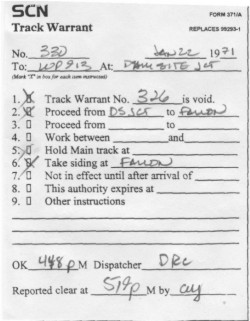 SCN
FORM 371/A
Track Warrant
REPLACES 99293-1
No. 330 Jan 22 1971
To: WP 913 At:
(Mark "X" in box for each item instructed)
1. X Track Warrant No. 326 is void.
2. X Proceed from DS JCT to FALLON
3. Proceed from to
4. Work between and
5. Hold Main track at
6. X Take siding at FALLON
7. Not in effect until after arrival of
8. This authority expires at
9. Other instructions
OK 448 p M Dispatcher DRC
Reported clear at 519p M by